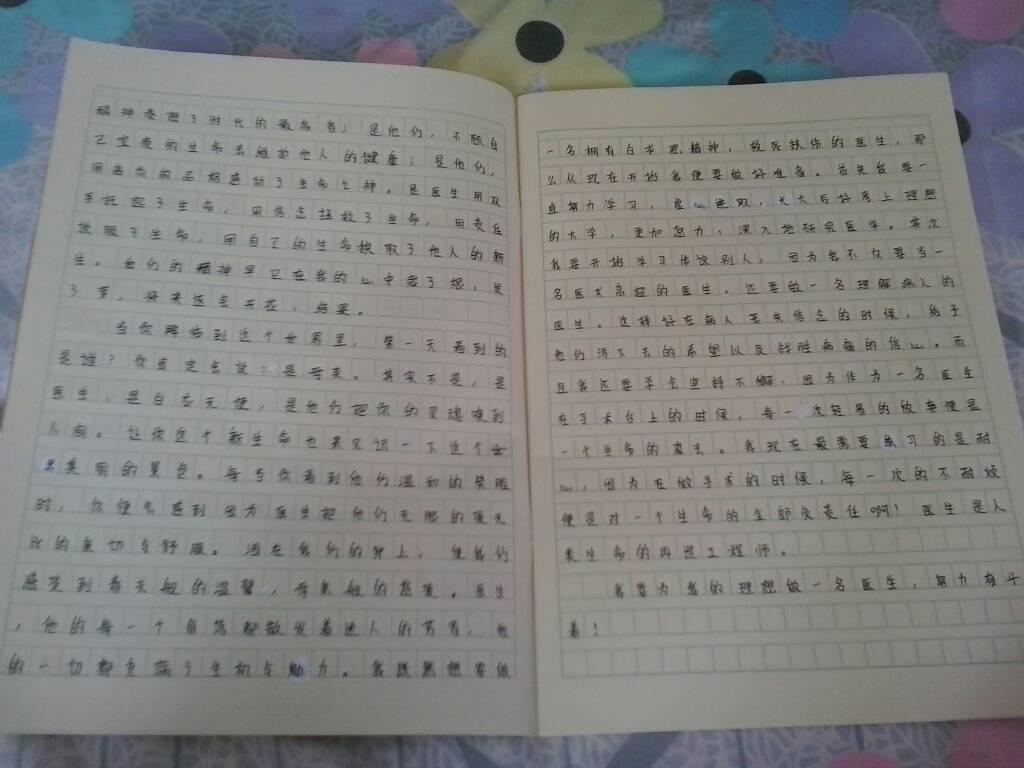 精神表现了时代的最高者；是他们，不顾自
己宝贵的生命去维护他人的健康；是他们，
用高贵的品格感动了生命之神。是医生用双
手托起了生命，用信念拯救了生命，用责任
说服了生命，用自己的生命换取了他人的新
生。他们的精神早已在我的心中栽了根，发
了芽，将来还会开花，结果。
当你降临到这个世界里，第一天看到的
是谁？你肯定会说：是母亲。其实不是，是
医生，是白衣天使，是他们把你的灵魂唤到
人间。让你这个新生命也来见识一下这个世
界美丽的景色。每当你看到他们温和的笑脸
时，你便会感到因为医生把他们无限的爱无
比的亲切与舒服。洒在我们的身上，使我们
感受到春天般的温馨，母亲般的慈爱。医生
，他的每一个角落都散发着迷人的芳香，他
的一切都充满了生机与魅力。我既然想要做
一名拥有白求恩精神，救死扶伤的医生，那
么从现在开始我便要做好准备。首先我要一
直努力学习，虚心进取，长大后好考上理想
的大学，更加努力、深入地研究医学。其次
我要开始学习体谅别人，因为我不仅要当一
名医术高超的医生，还要做一名理解病人的
医生。这样好在病人丢失信念的时候，给予
他们活下去的希望以及战胜病痛的信心。而
且我还要学会坚持不懈，因为作为一名医生
在手术台上的时候，每一次轻易的放弃便是
一个生命的离去。我现在最需要练习的是耐
心，因为在做手术的时候，每一次的不耐烦
便是对一个生命的全部负责任啊！医生是人
类生命的再造工程师。
我要为我的理想做一名医生，努力奋斗
着！